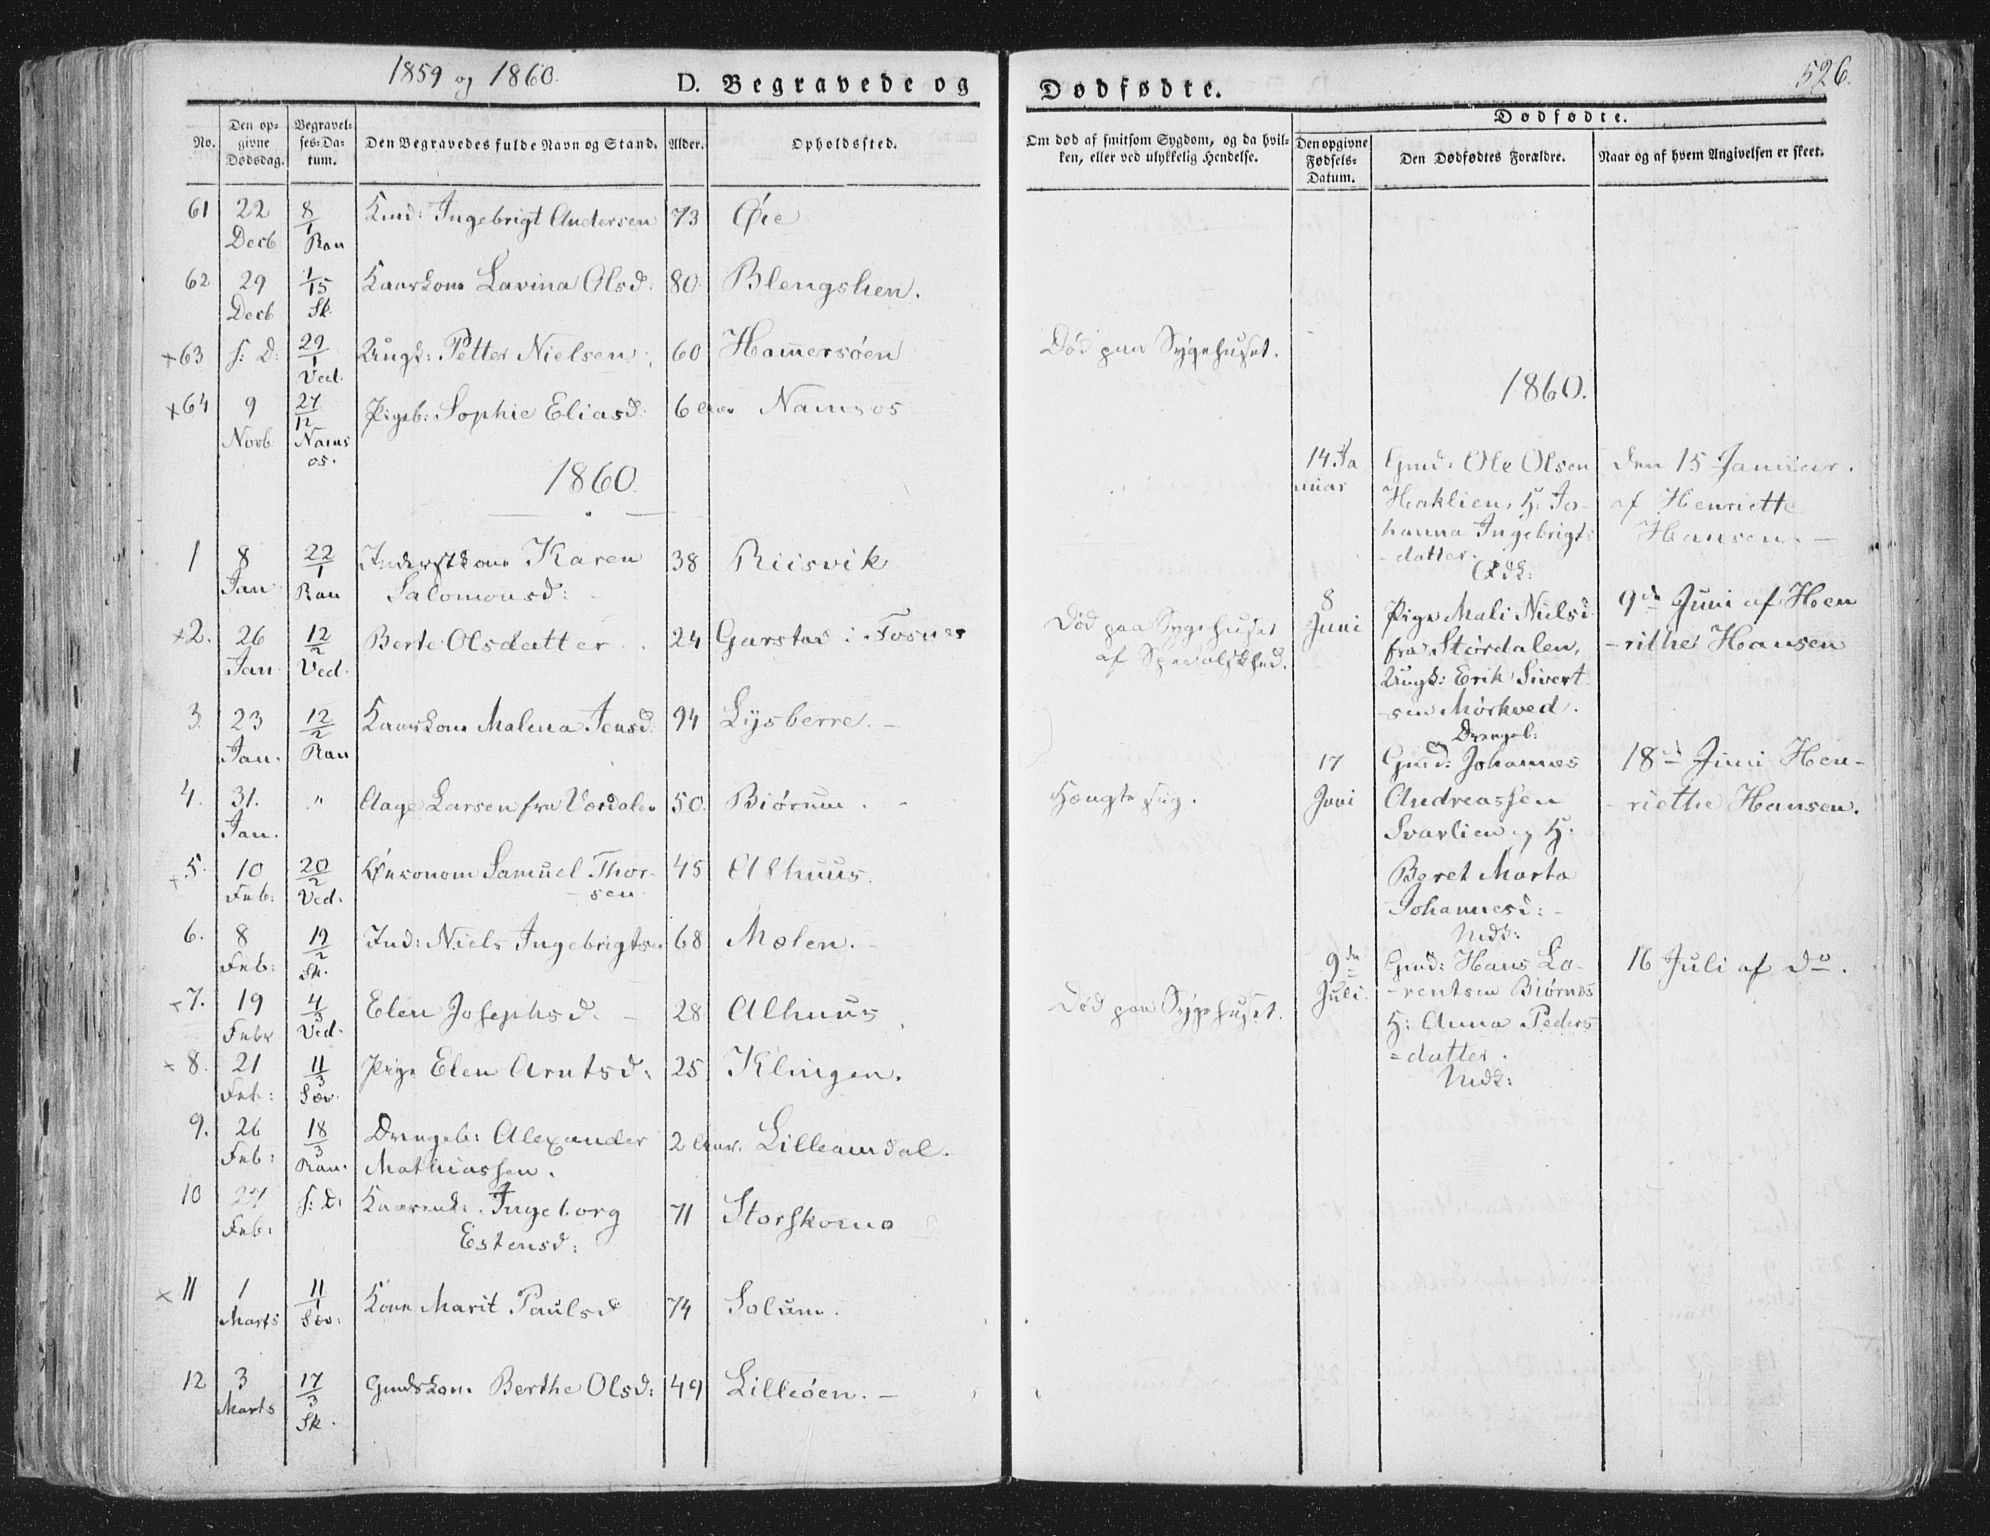 1859 og 1860.
D. Begravede og
No.
Den op-
givne
Dødsdag.
Begravel-
ses-Da-
tum.
Den Begravedes fulde Navn og Stand.
Alder.
Opholdssted.
61 22 8/1 Ingebrigt Andersen 73 Øie
Decb Ran
62 29 1/15 Kaarkone Lavina Olsd: 80 Blengslien.
Decb Sk.
x63 s: D: 29/1 Ungk: Petter Nielsen 60 Hammersøen
Ved.
x64 9 27/12 Pigeb: Sophie Eliasd: 6 Aar Namsos
Novb Nams
os.
1860.
1 8 22/1 Inderstkone Karen 38 Riisvik
Jan Ran Salomonsd:
x2. 26 12/2 Berte Olsdatter 24 Garstad i Fosnes
Jan Ved.
3. 23 12/2 Kaarkone Malena Jensd: 94 Lysberre.
Jan. Ran
4. 31. " Aage Larsen fra Værdalen 50. Biørum.
Jan.
+5. 10 20/2 Økonom Samuel Thor- 45 Alhuus.
Feb: Ved. -sen
6. 8 19/2 Ind: Niels Ingebrigts. 68 Molen.
Feb: Sk.
+7. 19 4/3 Elen Josephsd. 28 Alhuus
Febr Ved.
x 8. 21 11/3 Pige Elen Arntsd: 25 Klingen.
Feb: Sæv.
9. 26 18/3 Drengeb: Alexander 2 Aar. Lilleamdal.
Feb: Ran. Mathiassen.
10 27 s: D: Ingeborg 71 Storskomo
Feb: Estensd:
x 11 1 11/1 Kone Marit Paulsd 74 Solum.
Marts Sæv:
12 3 17/3 Gmdskone Berthe Olsd: 49 Lilleøen.
Marts Sk.
Dødfødte.
526.
Om død af smitsom Sygdom, og da hvil-
ken, eller ved ulykkelig Hendelse.
Dødfødte.
Den opgivne
Fødsels-
Datum.
Den Dødfødtes Forældre.
Naar og af hvem Angivelsen er skeet.
Død paa Sygehuset.
1860.
14. Ja Gmd: Ole Olsen den 15 Januar.
nuar Haklien, H: Jo- af Henriette
hanna Ingebrigts Hansen.
-datter.
8 Pige Mali Nielsd. 9de Juni af Hen
Død paa Sygehuset Juni fra Størdalen, -rithe Hansen
af Spedalskhed. Ungk: Erik Sivert-
-sen Mørkved.
Drengeb:
17 Gmd: Johannes 18de Juni Hen-
Hængte sig. Juni Andreassen -riethe Hansen.
Svarlien og H:
Beret Marta
Johannesd:
9de Gmd: Hans La- 16 Juli af do.
Juli. -rentsen Biørnes
Død paa Sygehuset. H: Anna Peders
=datter.